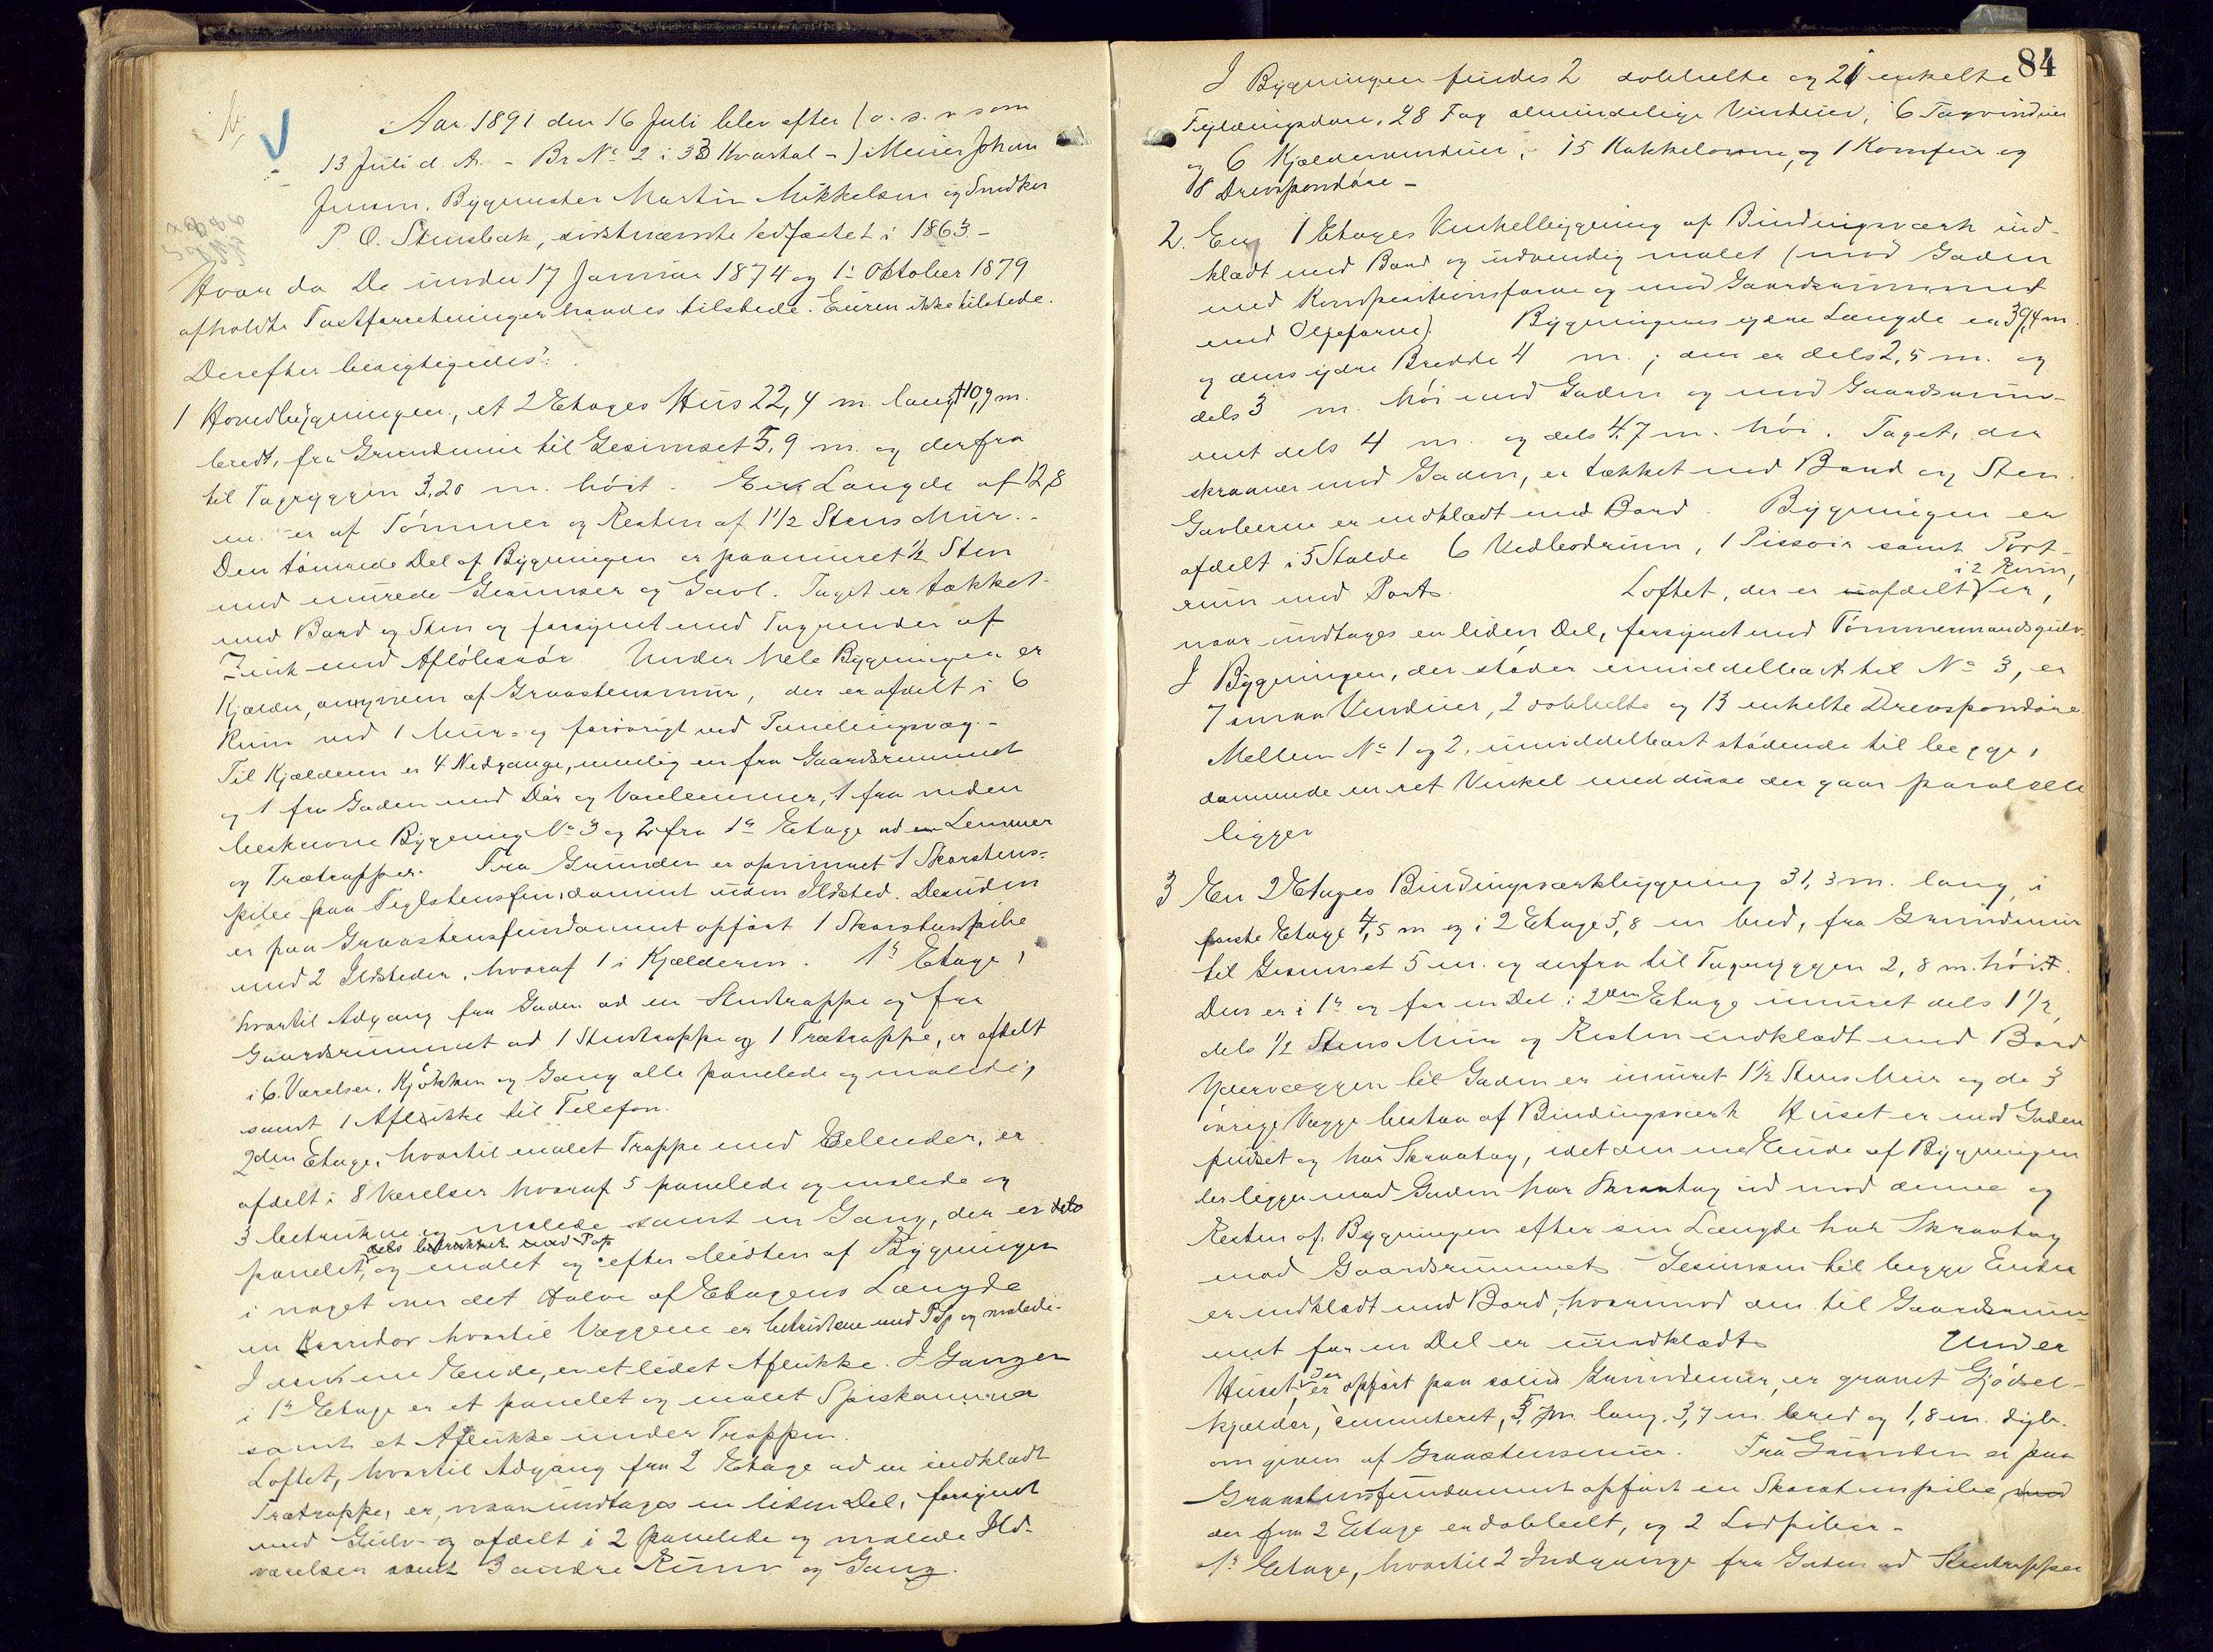 Aar 1891 den 16 Juli blev efter (o. s. v som
13 Juli d. A. - Br No 2 i 33 Kvartal -) i Meier Johan
Jensen, Bygmester Martin Mikkelsen og Snedker
P. O. Stensbak, sidstnævnte edfæstet i 1863. -
Hvor da De under 17 Januar 1874 og 1ste Oktober 1879
afholdte Taxtforretninger havdes tilstede. Eieren ikke tilstede.
Derefter besigtigedes:
1 Hovedbygningen, et 2 Etages Hus 22,4 m. langt 10,9 m.
bredt, fra Grundmur til Gesimset 5,9 m. og derfra
til Tagryggen 3,20 m. høit. En Længde af 12,8
m. er af Tømmer og Resten af 1 1/2 Stens Mur. -
Den tømrede Del af Bygningen er paamuret 1/2 Sten
med murede Gesimser og Gavl. Taget er tækket
med Bord og Sten og forsynet med Tagrender af
Zink med Afløbsrør. Under hele Bygningen er
Kjælder, omgiven af Graastensmur, der er afdelt i 6
Rum ved 1 Mur- og forøvrigt ved Panelingsvæg. -
Til Kjælderen er 4 Nedgange, nemlig en fra Gaardsrummet
og 1 fra Gaden med Dør og Varelemmer, 1 fra neden
beskrevne Bygning No 3 og 2 fra 1ste Etage ad Lemmer
og Trætrapper. Fra Grunden er opmuret 1 Skorstens-
pibe paa Teglstensfundament uden Ildsted. Desuden
er paa Graastensfundament opført 1 Skorstenspibe
med 2 Ildsteder, hvoraf 1 i Kjælderen. 1ste Etage,
hvortil Adgang fra Gaden ad en Stentrappe og fra
Gaardsrummet ad 1 Stentrappe og 1 Trætrappe, er afdelt
i 6 Værelser, Kjøkken og Gang alle panelede og malede,
samt 1 Aflukke til Telefon.
2den Etage, hvortil malet Trappe med Gelender, er
afdelt i 8 Værelser hvoraf 5 panelede og malede og
3 betrukne og malede samt en Gang, der er dels
panelet, dels betrukket med Pap og malet og efter Midten af Bygningen
i noget over det Halve af Etagens Længde
en Korridor hvortil Væggene er betrukne med Pap og malede.
I den ene Ende, er et lidet Aflukke. I Gangen
i 1ste Etage er et panelet og malet Spiskammer
samt et Aflukke under Trappen.
Loftet, hvortil Adgang fra 2 Etage ad en indklædt
Trætrappe, er, naar undtages en liden Del, forsynet
med Gulv og afdelt i 2 panelede og malede Ild-
værelser samt 3 andre Rum og Gang.
84
I Bygningen findes 2 dobbelte og 21 enkelte
Fyldingsdøre, 28 Fag almindelige Vinduer, 6 Tagvinduer
og 6 Kjældervinduer, 15 Kakkelovne, og 1 Komfur og
8 Drevspondøre -
2. En 1 Etages Vinkelbygning af Bindingsværk ind-
klædt med Bord og udvendig malet (mod Gaden
med Kompositionsfarve og mod Gaardsrummet
med Oljefarve). Bygningens ydre Længde er 39,4 m.
og dens ydre Bredde 4 m.; den er dels 2,5 m. og
dels 3 m. høi mod Gaden og mod Gaardsrum-
met dels 4 m. og dels 4,7 m. høi. Taget, der
skraaner mod Gaden, er tækket med Bord og Sten.
Gavlerne er indklædt med Bord. Bygningen er
afdelt i 5 Stalde 6 Vedbodrum, 1 Pissoir samt Port-
rum med Port. Loftet, der er afdelt i 2 Rum, er,
naar undtages en liden Del, forsynet med Tømmermandsgulv.
I Bygningen, der støder umiddelbart til No 3, er
7 smaa Vinduer, 2 dobbelte og 13 enkelte Drevspondøre.
Mellem No 1 og 2, umiddelbart stødende til begge,
dannende en ret Vinkel med disse der gaar paralelle
ligger
3 En 2 Etages Bindingsværkbygning 31,3 m. lang, i
første Etage 4,5 m og i 2 Etage 5,8 m bred, fra Grundmur
til Gesimset 5 m. og derfra til Tagryggen 2,8 m. høi.
Den er i 1ste og for en Del i 2den Etage inmuret dels 1 1/2,
dels 1/2 Stens Mur og Resten indklædt med Bord
Ydervæggen til Gaden er inmuret 1 1/2 Stens Mur og de 3
øvrige Vægge bestaa af Bindingsværk Huset er mod Gaden
pudset og har Skraatag, idet den ene Ende af Bygningen
der ligger mod Gaden har Skraatag ud mod denne og
Resten af Bygningen efter sin Længde har Skraatag
mod Gaardsrummet. Gesimsen til begge Ender
er indklædt med Bord, hvorimod den til Gaardsrum-
met for en Del er uindklædt. Under
Huset, der er opført paa solid Grundmur, er gravet Gjødsel-
kjælder, cementeret, 5, m. lang. 3,7 m. bred og 1,8 m. dyb.
omgiven af Graastensmur. Fra Grunden er paa
Graastensfundament opført en Skorstenspibe, med
der fra 2 Etage er dobbelt, og 2 Lodpiber -
1ste Etage, hvortil 2 Indgange fra Gaden ad Stentrapper